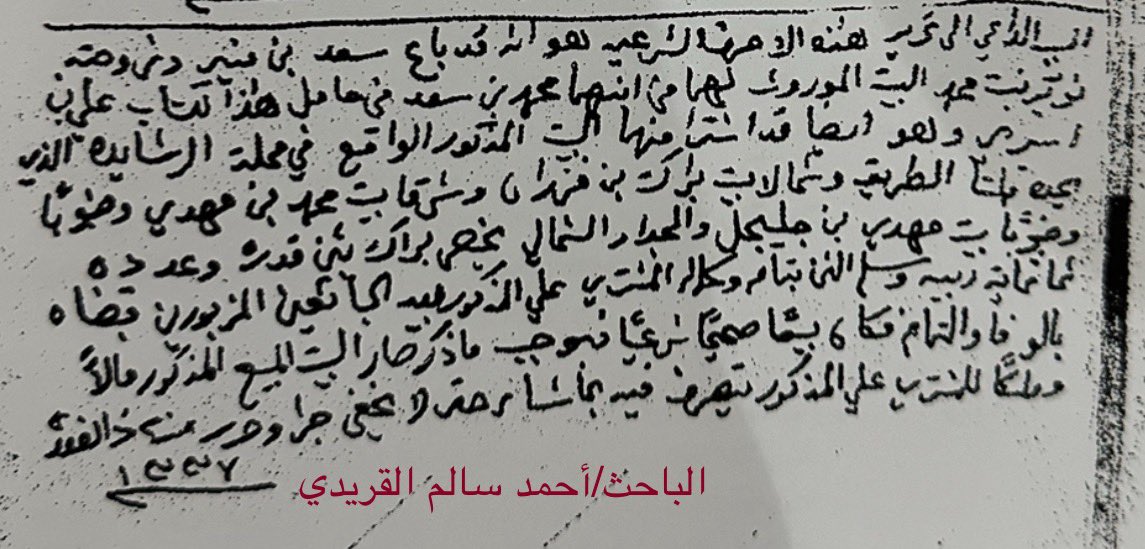 السبب الداعي الى تحرير هذه الاحرف الشرعيه هو انه قد باع سعد بن منير وزوجته
نوير بنت محمد البيت الموروث لهما من ابنهما محمد بن سعد من حامل هذا الكتاب علي بن
وهو ايضا قد اشترا منهما البيت المذكور الواقع في محلة الرشايده الذي
يحده قبلتاً الطريق وشمالا بيت براك بن وشرقا بيت محمد بن مهدي وجنوبًا
وجنوبًا بيت مهدي بن جليجل والجدار الشمالي يخص براك بثمن قدره وعدده
ثمانمائة ربيه وسلم الثمن بتمامه وكماله المشتري علي المذكور بيد البائعين المزبورين قبضاه
بالوفا والتمام فكان بيعًا صحيحًا شرعيًا فبموجب ما ذكر صار البيت المبيع المذكور مالاً
وملكًا للمشتري علي المذكور يتصرف فيه بما شا حتى لا يخفى جرا وحرر في ذ القعدة
١٣٣٧
الباحث/أحمد سالم القريدي